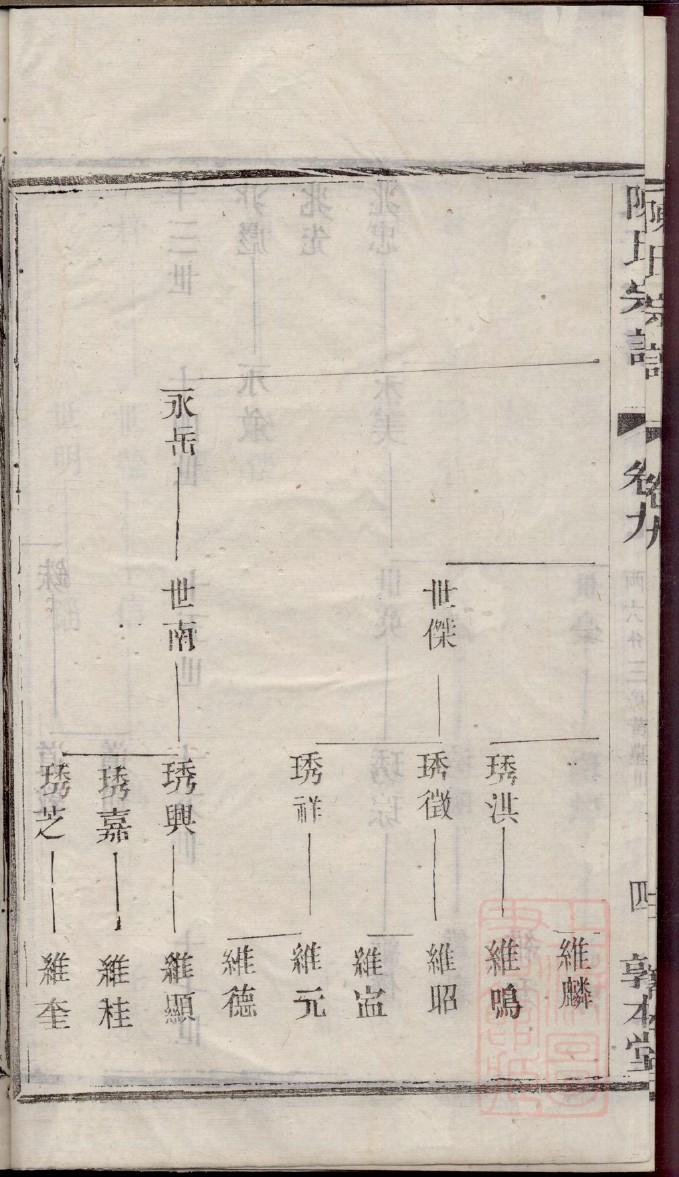 陳氏宗譜
卷九
敦本堂
維麟
琇淇
維鳴
世傑
琇徵
維昭
維㝉
琇祥
維元
維德
永岳
世南
琇興
維顯
琇嘉
維桂
琇芝
維奎